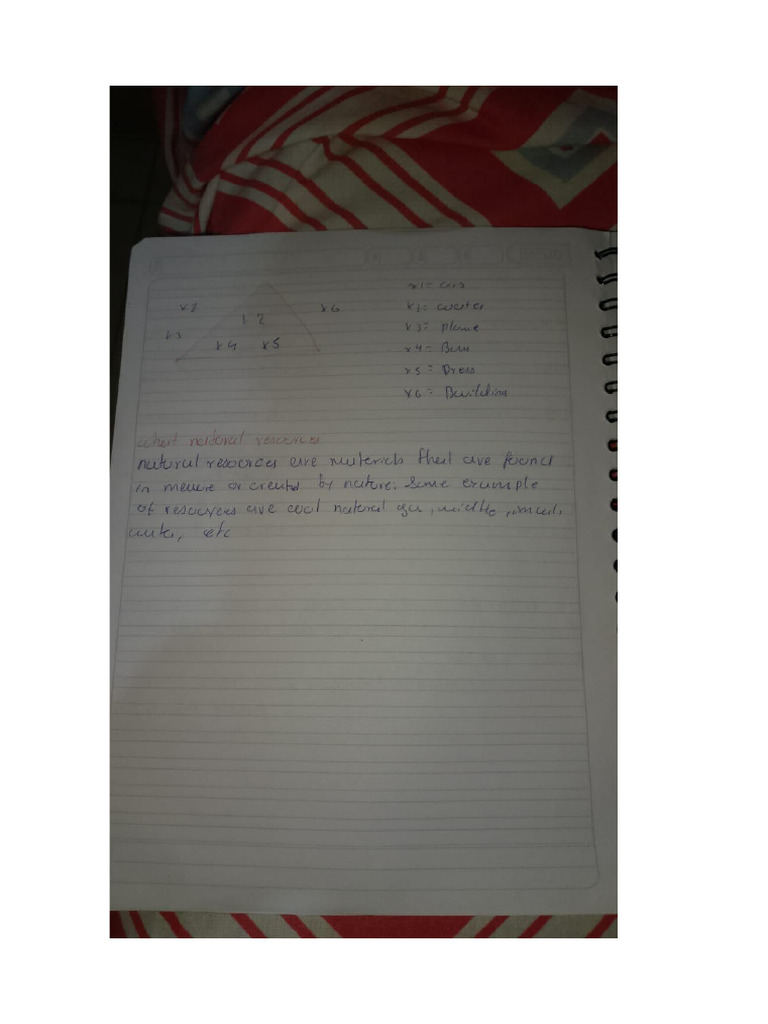 x2
x3
1 2
x4 x5
x6
x1= cars
x2= water
x3= plane
x4=
x5= Dress
x6=
what natural resources
natural resources are materials that are found
in or created by nature. Some example
of resources are coal natural gas,
etc